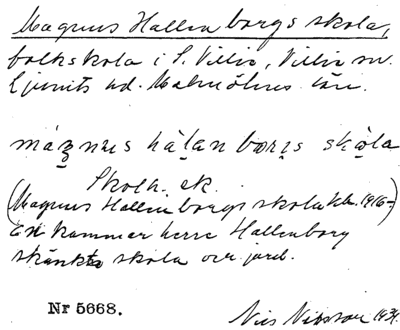 Magnus Hallenborgs skola,
folkskola i S. Villie, Villie sn.
Ljunits hd. Malmöhus län.
mágnus hàlanbærjs skǫla
Skolk. ek.
(Magnus Hallenborgs skola kb. 1916-)
En kammarherre Hallenborg
skänkte skola och jord.
Nr 5668.
Nils Nilsson 1931.